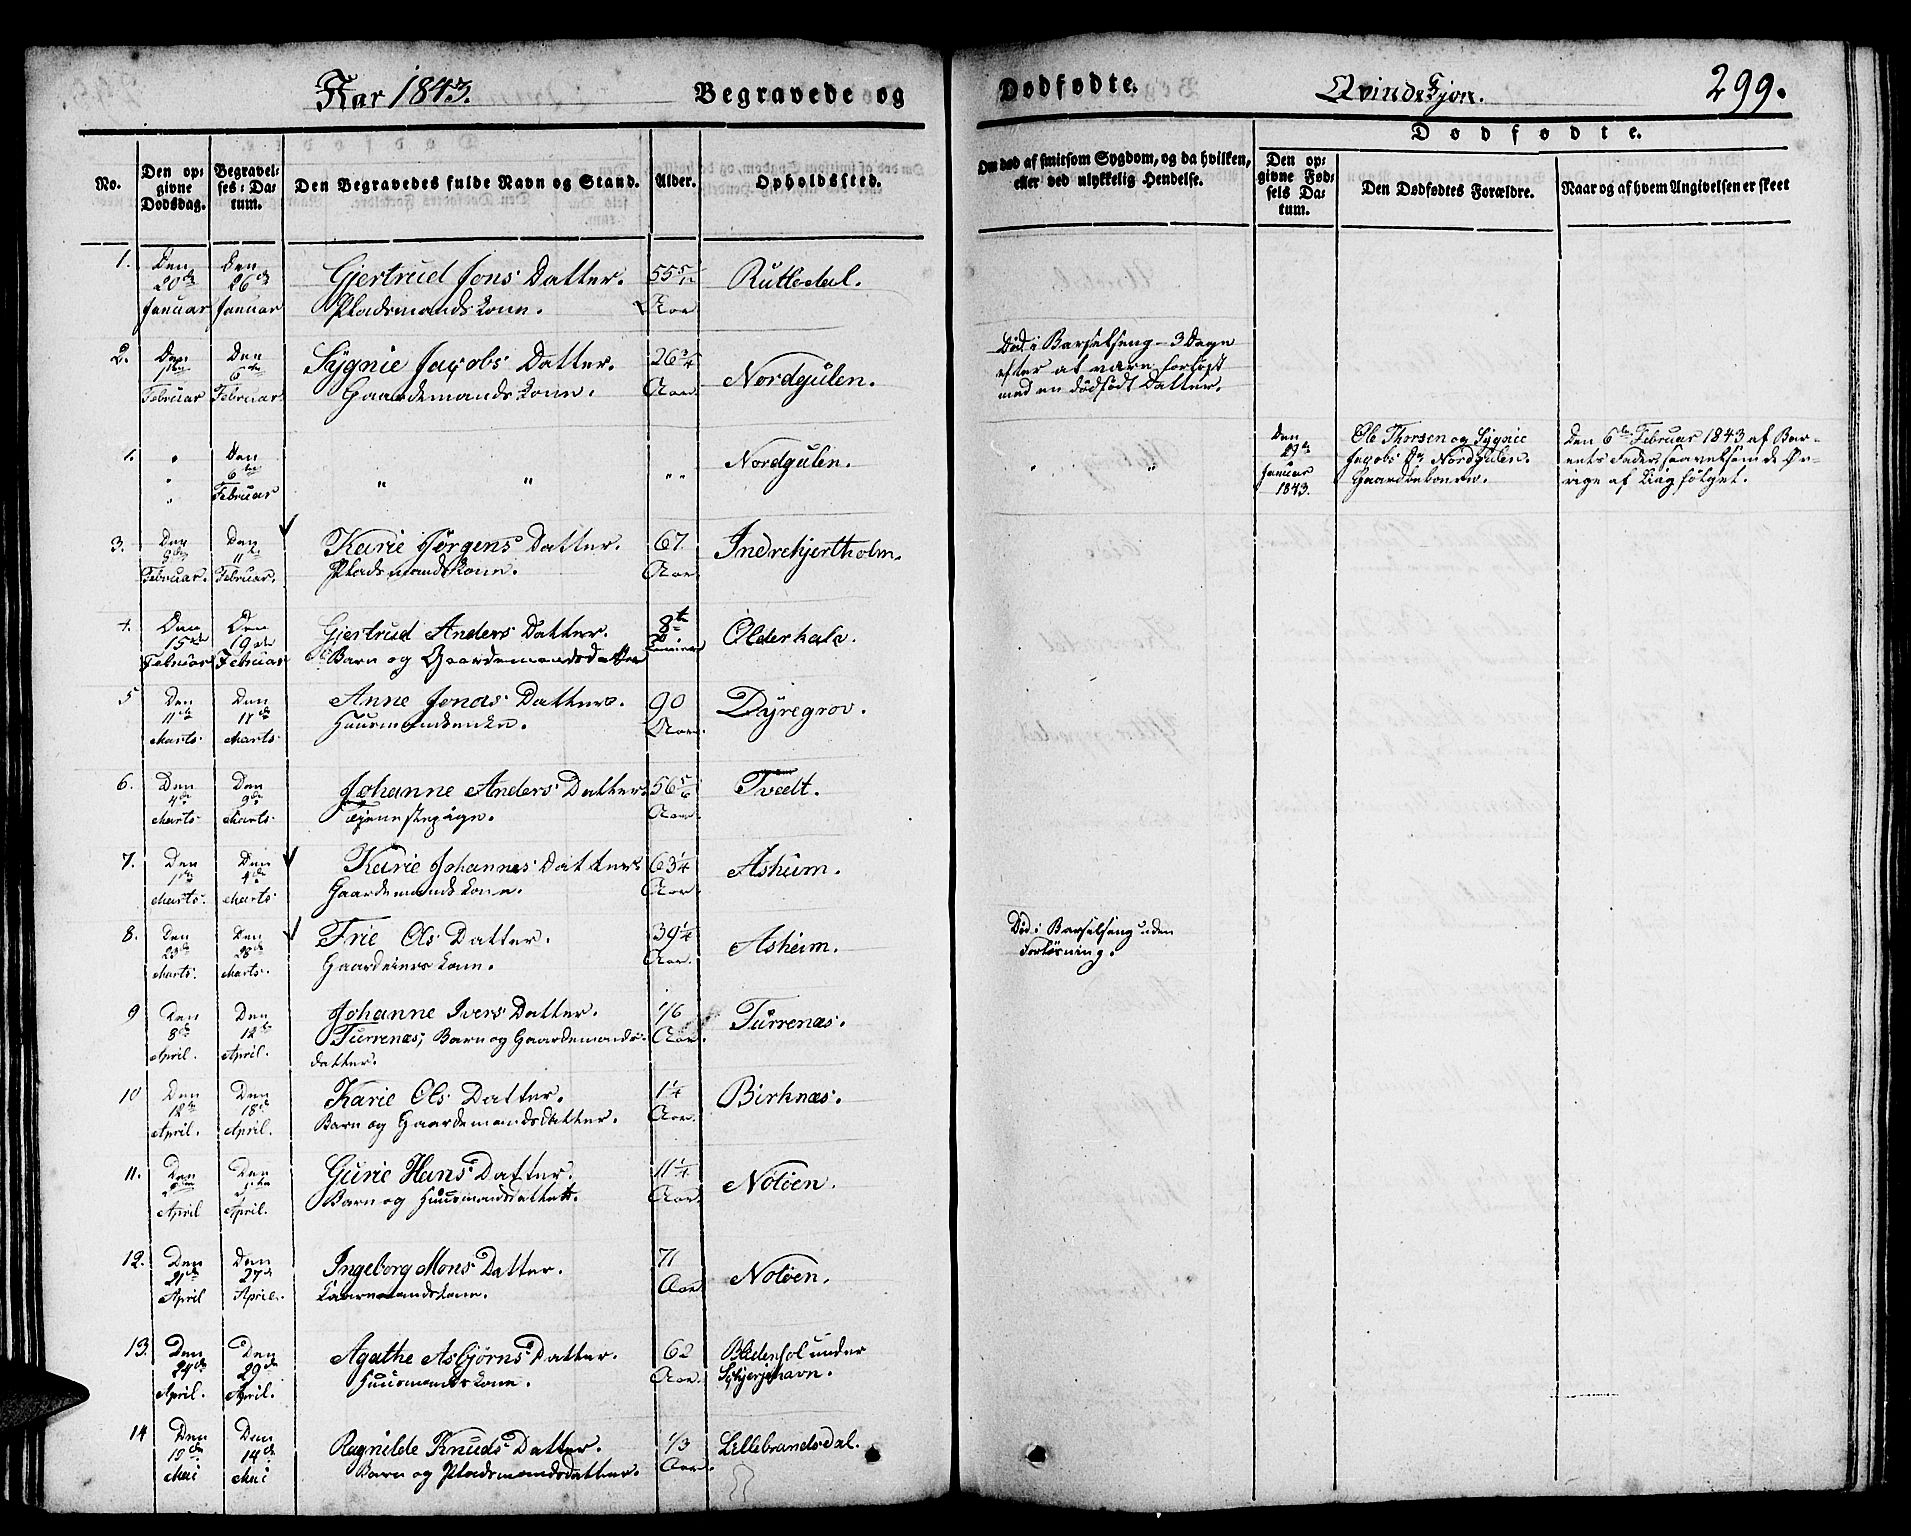 Aar 1843. Begravede og
No. Den opgivne Dødsdag. Begravelses-Datum. Den Begravedes fulde Navn og Stand. Alder. Opholdssted.
1. Den 20de Januar Den 26de Januar Gjertrud Jons Datter. 55 5/12 Aar Rutledal.
Pladsmandskone.
2. Den 1ste Februar Den 6te Februar Sygnie Jacobs Datter. 26 3/4 Aar Nordgulen.
Gaardemandskone.
1. " Den 6te Februar " " " Nordgulen.
3. Den 8de Februar. Den 11te Februar. Karie Jørgens Datter. 67. Aar. Indrehjertholm.
Pladsmandskone.
4. Den 15de Februar Den 19de Februar Gjertrud Anders Datter. 8te Olderkale.
Barn og Gaardemandsdatter
5 Den 11te Marts Den 17de Marts Anne Jonas Datter. 90 Aar. Dyregrov.
Huusmandsenke.
6. Den 4de Marts Den 9de Marts Johanne Anders Datter. 56 5/6 Aar. Tvedt.
Tjenestepige.
7. Den 1ste Marts. Den 4de Marts Karie Johannes Datter 63 1/4 Aar. Asheim.
Gaardemandskone.
8. Den 23de Marts. Den 28de Marts. Frie Ols Datter. 39 1/4 Aar. Asheim.
Gaardeierskone.
9 Den 8de April. Den 12te April. Johanne Ivers Datter. 1/6 Aar. Turrenæs.
Turrenæs, Barn og Gaardemands-
datter.
10 Den 12te April. Den 18de April. Karie Ols Datter. 1 1/4 Aar. Birknæs.
Barn og Gaardemandsdatter.
11. Den April Den April. Gurie Hans Datter. 11 1/4 Aar. Nötöen.
Barn og Huusmandsdatter.
12. Den 21de April Den 27de April. Ingeborg Mons Datter. 71 Aar. Nötöen.
Kaarmandskone.
13. Den 24de April. Den 29de April. Agathe Asbjørns Datter. 62 Aar. under
Huusmandskone. Skjerjehavn.
14 Den 10de Mai Den 14de Mai Ragnilde Knuds Datter. 1/3 Aar. Lillebrandsdal.
Barn og Pladsmandsdatter.
Dødfødte. Qvindekjøn. 299.
Om død af smitsom Sygdom, og da hvilken,
eller ved ulykkelig Hendelse.
Dødfødte.
Den opgivne Fødsels Datum. Den Dødfødtes Forældre. Naar og af hvem Angivelsen er skeet
Död i Barselseng – 3 Dage
efter at være forlöst
med en dödfödt Datter.
" " Den 29de Januar 1843. Ole Thorsen og Sygnie
Jacobs Dr. Nordgulen.
Gaardbeboere.
Den 6te Februar 1843 af Bar-
nets Fader saavelsom de Öv-
rige af Liigfölget.
Död i Barselseng uden
Forlösning.